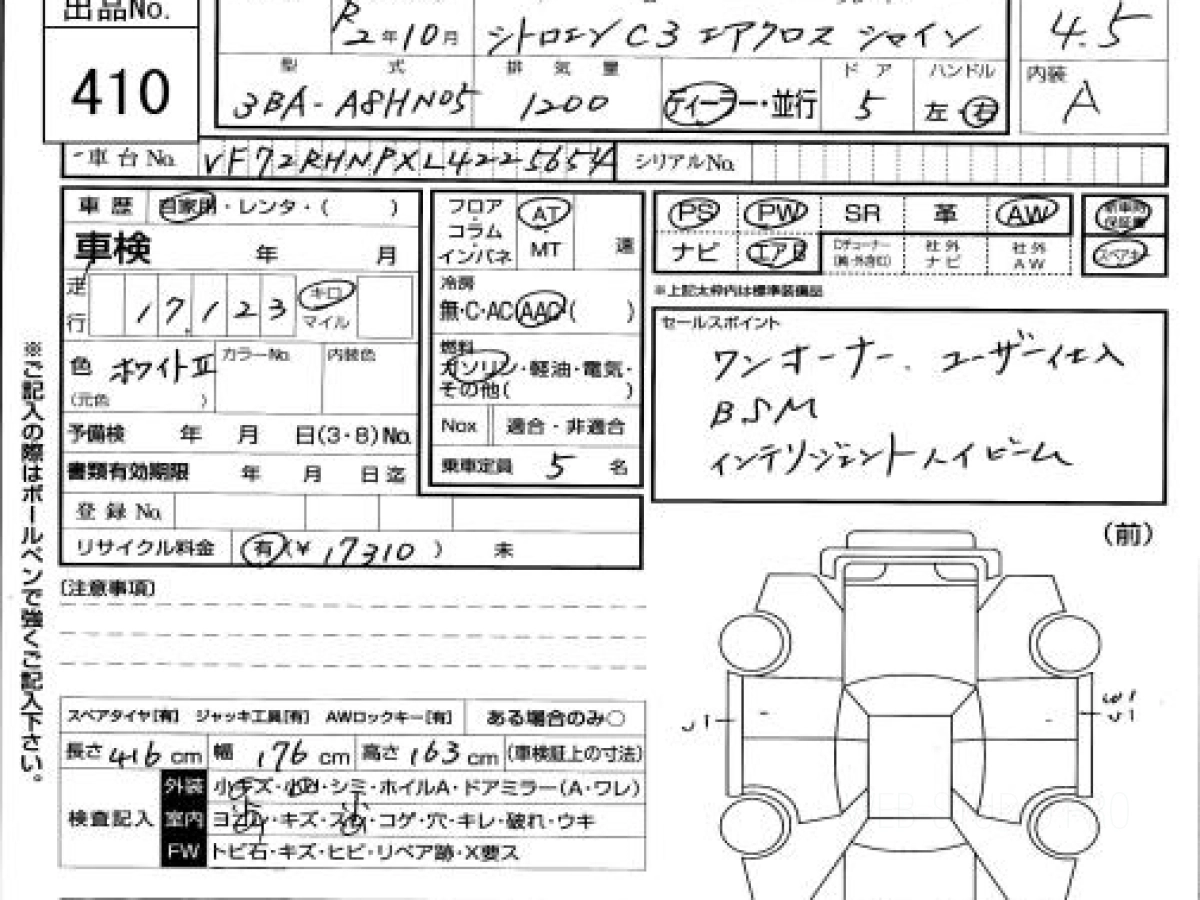 出品No.
410
R2年10月 シトロエン C3 エアクロス シャイン
4.5
型式 排気量 ドア ハンドル 内装
3BA-A8HN05 1200 ディーラー・並行 5 左・右 A
車台No. VF72RHNPXL4225654 シリアルNo.
車歴 自家用・レンタ・( )
車検 年 月
走行 17,123 キロ マイル
色 ホワイトII カラーNo. 内装色
(元色 )
予備検 年 月 日(3・8)No.
書類有効期限 年 月 日迄
登録No.
リサイクル料金 有(¥ 17310 ) 未
フロア・コラム・インパネ AT・MT 速
冷房
無・C・AC・AAC( )
燃料
ガソリン・軽油・電気・
その他( )
Nox 適合・非適合
乗車定員 5 名
PS PW SR 革 AW 新車時保証書
ナビ エアB Dチューナー(純・外含む) 社外ナビ 社外AW スペアキー
※上記太枠内は標準装備品
セールスポイント
ワンオーナー、ユーザー仕入
BSM
インテリジェントハイビーム
※ご記入の際はボールペンで強くご記入下さい。
[注意事項]
(前)
スペアタイヤ[有] ジャッキ工具[有] AWロックキー[有] ある場合のみ○
長さ 416 cm 幅 176 cm 高さ 163 cm (車検証上の寸法)
検査記入
外装 小キズ・小凹・シミ・ホイルA・ドアミラー(A・ワレ)
室内 ヨゴレ・キズ・スレ・コゲ・穴・キレ・破れ・ウキ
FW トビ石・キズ・ヒビ・リペア跡・X要ス
U1
U1